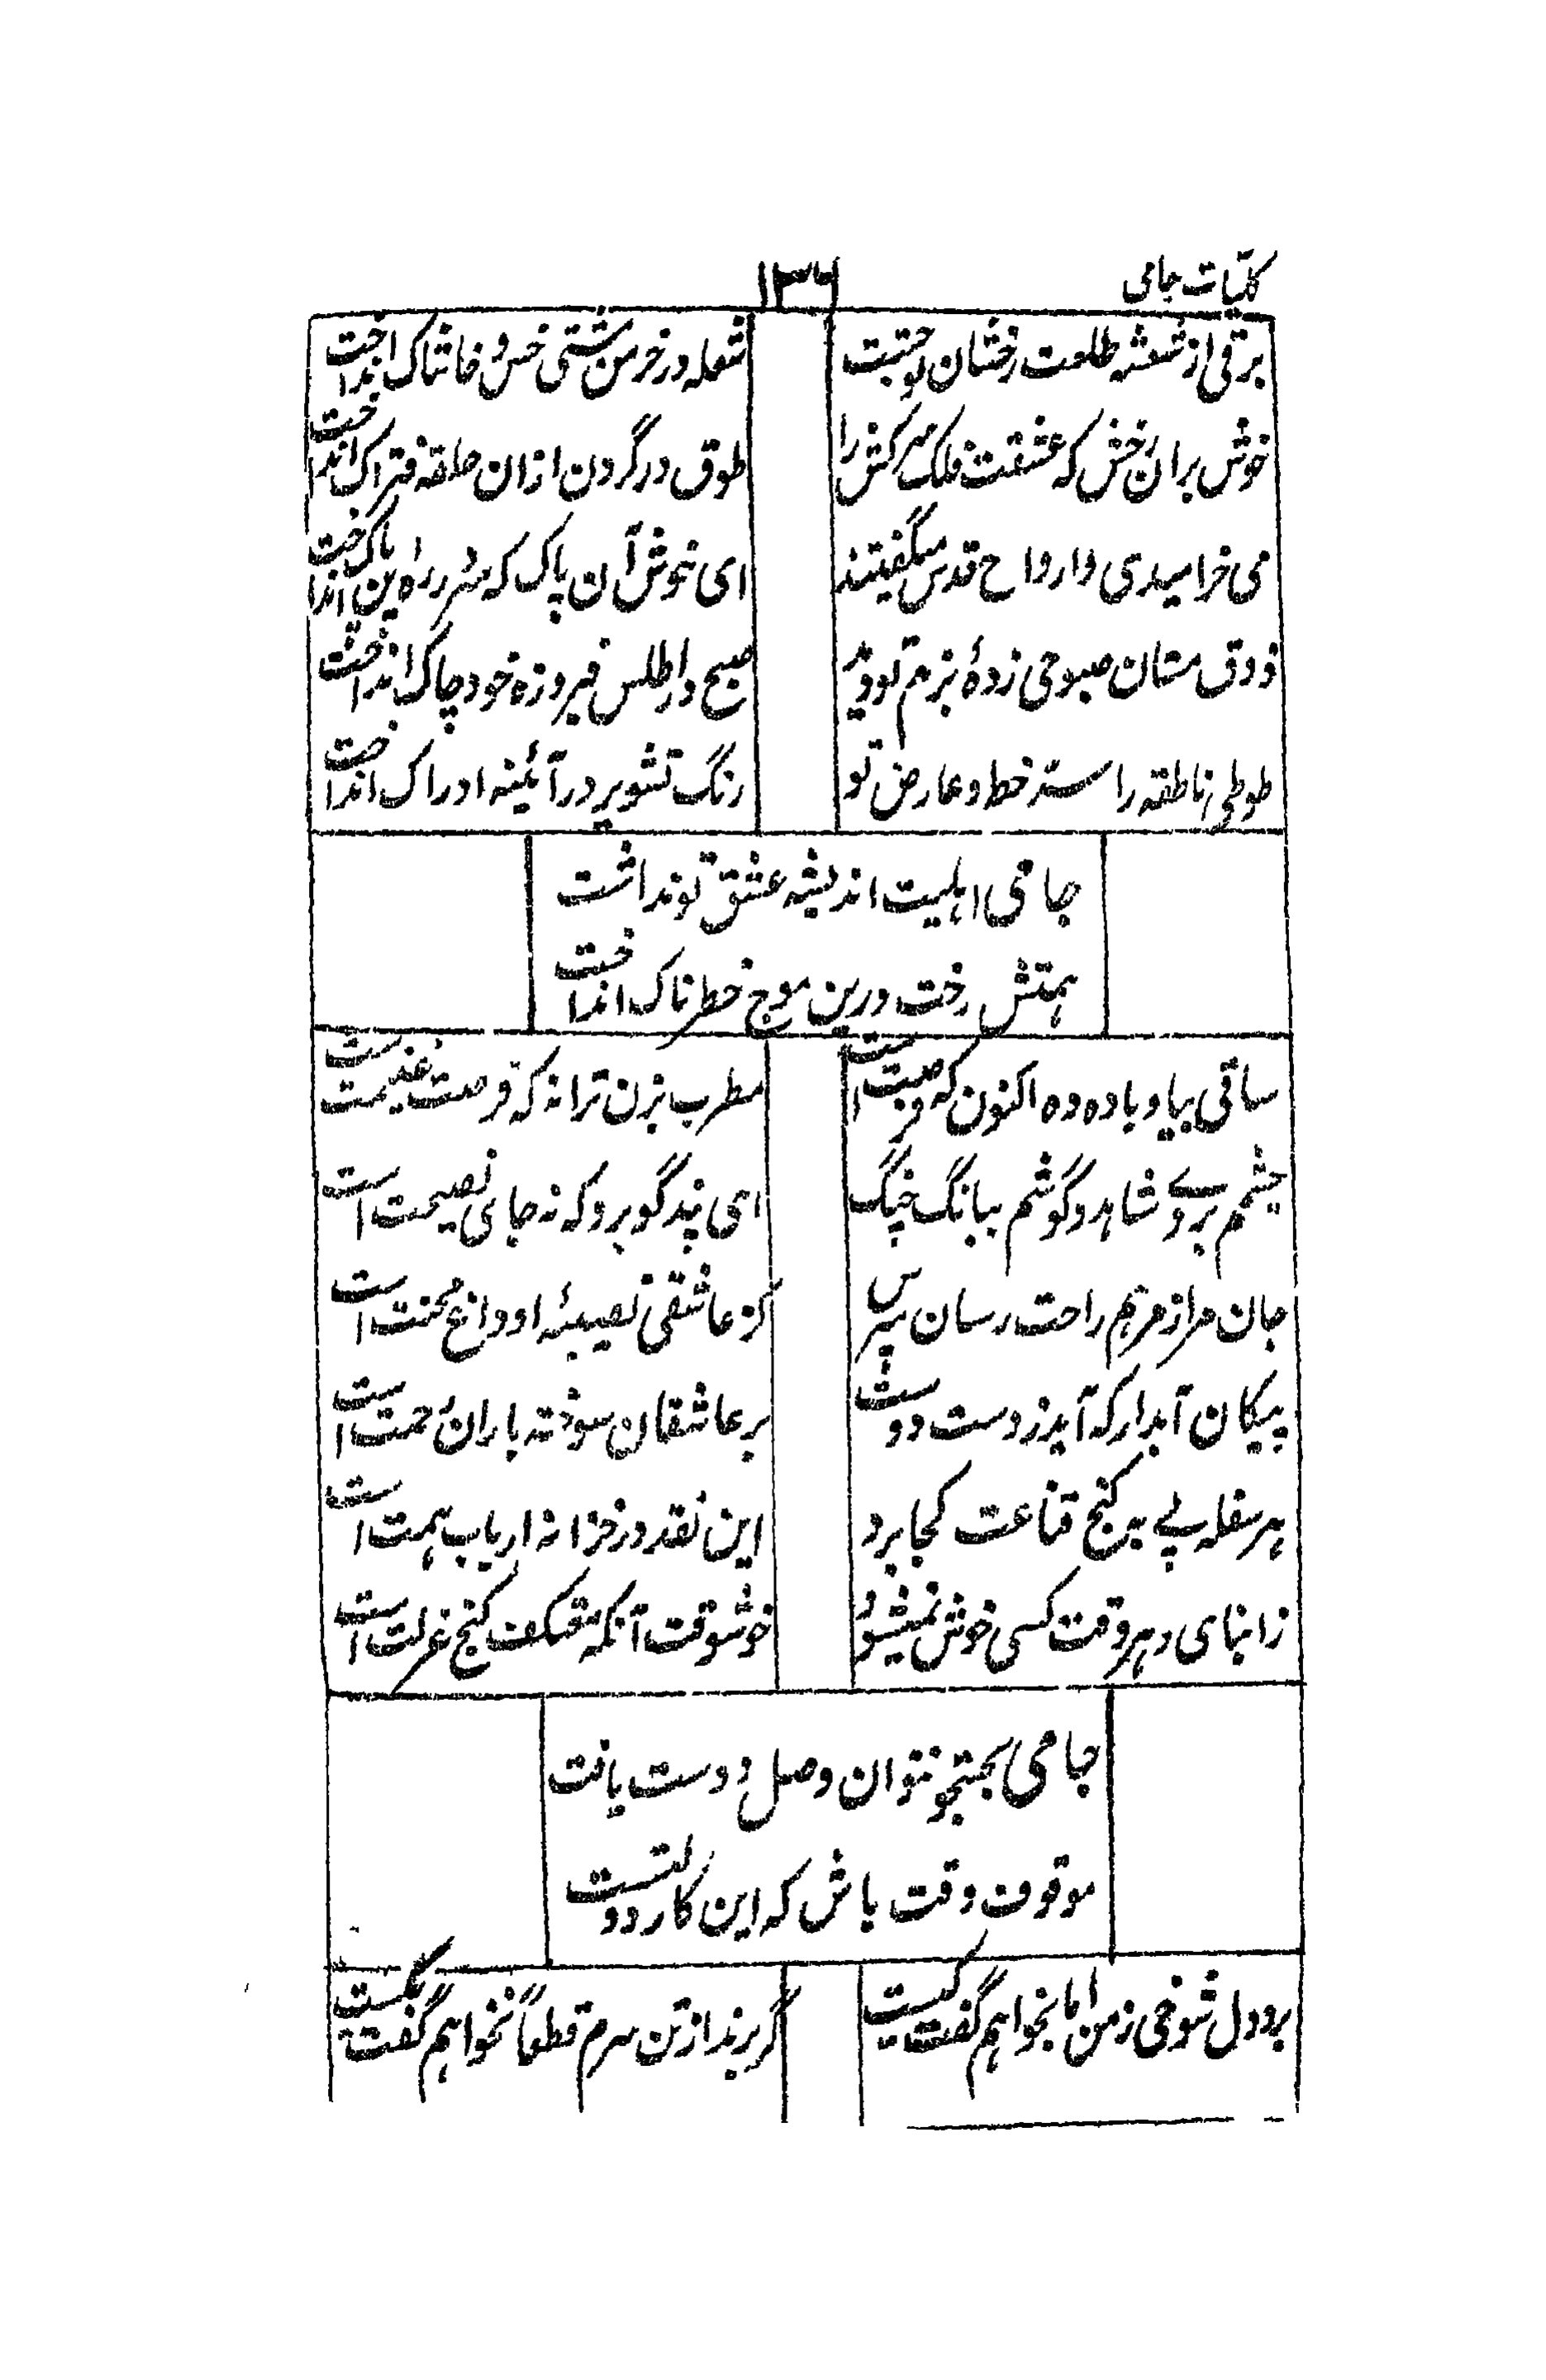 کلیات جامی
۱۳۶
برقی از شعشهٔ طلعت رخشان تو جست
شعله در خرمن مشتی خس و خاشاک انداخت
خوش بران رخش که عشقت فلک سرکش را
طوق در گردن ازان حلقه فتراک انداخت
می خرامیدی و ارواح قدس میگفتند
ای خوش آن پاک که سر در راه این پاک انداخت
ذوق مستان صبوحی زدهٔ بزم تو دید
صبح در اطلس فیروزه خود چاک انداخت
طوطی ناطقه را سد خط و عارض تو
رنگ تشویر در آئینه ادراک انداخت
جامی اهلیت اندیشه عشق تو نداشت
همتش رخت درین موج خطرناک انداخت
ساقی بیا و باده ده اکنون که فرصت است
مطرب بزن ترانه که فرصت غنیمت ست
چشمم بروے شاهد و گوشم ببانگ چنگ
ای پندگو برو که نه جای نصیحت است
جان مرا ز مرهم راحت رسان مپرس
کز عاشقی نصیبئه او داغ محنت است
پیکان آبدار که آید ز دست دوست
بر عاشقان سوخته باران رحمت است
هر سفله پے به گنج قناعت کجا برد
این نقد در خزانه ارباب همت است
زابنای دهر وقت کسی خوش نمیشود
خوشوقت آنکه معتکف کنج عزلت است
جامی بجستجو نتوان وصل دوست یافت
موقوف وقت باش که این کار دولتست
برد دل شوخی ز من اما نخواهم گفت کیست
گر برند از تن سرم قطعاً نخواهم گفت کیست